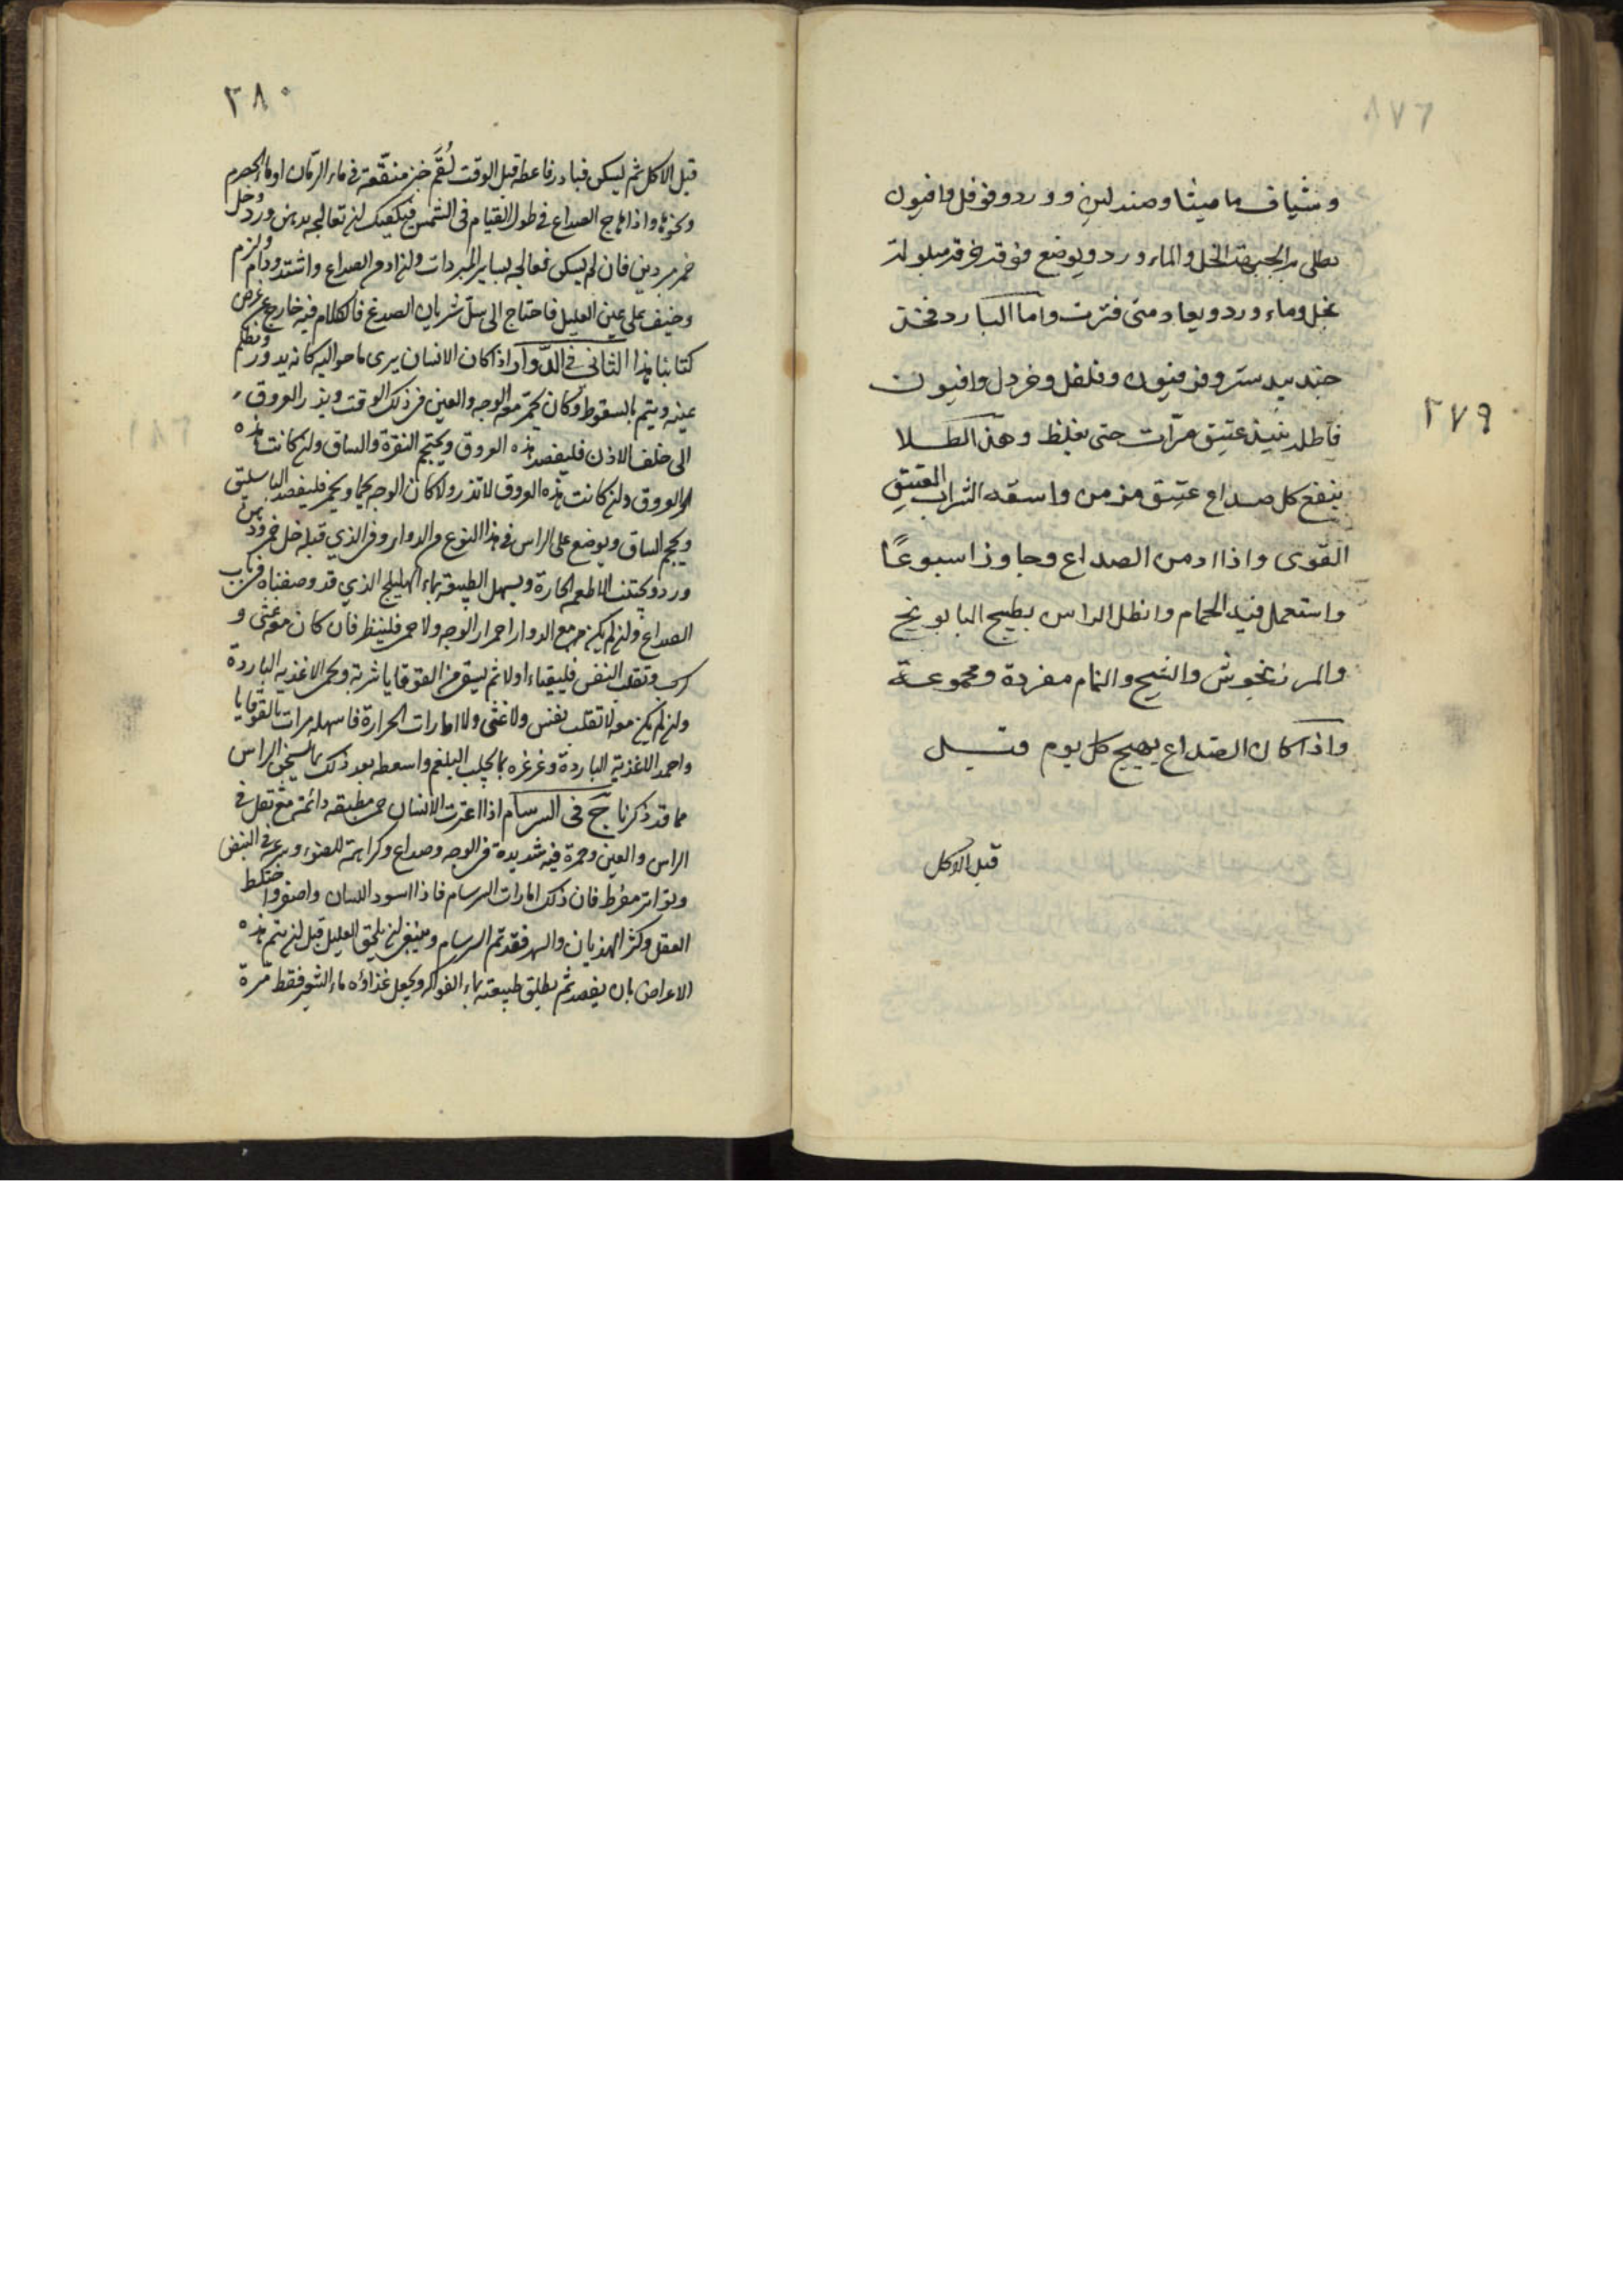 ٣٧٩
وشياف ماميثا وصندلين وورد وفوفل وافيون
يطلى به الجبهة بالخل والماء ورد ويوضع فوقه خرقة مبلولة
بخل وماء ورد ويعاد متى فترت واما البارد فخذ
جندبيدستر وفرفيون وفلفل وخردل وافيون
فاطله بنبيذ عتيق مرات حتى يغلظ وهذا الطلا
ينفع كل صداع عتيق مزمن واسقه الشراب العتيق
القوى واذا ادمن الصداع وجاوز اسبوعًا
واستعمل فيه الحمام وانطل الراس بطبيخ البابونج
والمرزنجوش والشيح والنمام مفردة ومجموعة
واذا كان الصداع يهيج كل يوم قبل
قبل الاكل
٣٨٠
قبل الاكل ثم يسكن فبادر فاعطه قبل الوقت لُقَم خبز منقعة فى ماء الرمان او ماء الحصرم
ونحوها واذا هاج الصداع فى طول القيام فى الشمس فيكفيك ان تعالجه بدهن ورد وخل
خمر مبردين فان لم يسكن فعالجه بساير المبردات وان ادمن الصداع واشتد ودام ولزم
وخيف على عين العليل فاحتاج الى سل شريان الصدغ فالكلام فيه خارج عن غرض
كتابنا هذا الثانى فى الدوار اذا كان الانسان يرى ما حواليه كانه يدور وتظلم
عينه ويتم بالسقوط وكان يحمر معه الوجه والعين فى ذلك الوقت ويدر العروق
الى خلف الاذن فليفصد هذه العروق ويحتجم النقرة والساق وان كانت هذه
العروق وان كانت هذه العروق لا تدر ولا كان الوجه يحما ويحمر فليفصد الباسليق
ويحجم الساق ويوضع على الراس فى هذا النوع من الدوار وفى الذي قبله خل خمر ودهن
ورد ويجتنب الاطعمة الحارة ويسهل الطبيعة بماء الهليلج الذي قد وصفناه فى باب
الصداع وان لم يكن مع الدوار احمرار الوجه ولا حمى فلينظر فان كان معه غثى و
كرب وتقلب النفس فليقياء اولا ثم يسقى من القوقايا شربة ويحمى الاغذيه الباردة
وان لم يكن معه لا تقلب نفس ولا غثى ولا امارات الحرارة فاسهله مرات بالقوقايا
واحمه الاغذية الباردة وغرغره بما يجلب البلغم واسعطه بعد ذلك بما يسخن الراس
مما قد ذكرنا ج فى السرسام اذا اعترت الانسان حمى مطبقه دائمة مع ثقل فى
الراس والعين وحمرة فيه شديدة فى الوجه وصداع وكراهة للضوء وسرعة فى النبض
وتواتر مفرط فان ذلك امارات السرسام فاذا اسود اللسان واصفر واختلط
العقل وكثر الهذيان والسهر فقد تم السرسام وينبغى ان يلحق العليل قبل ان يتم هذه
الاعراض بان يفصد ثم يطلق طبيعته بماء الفواكه ويجعل غذاؤه ماء الشعير فقط مرة